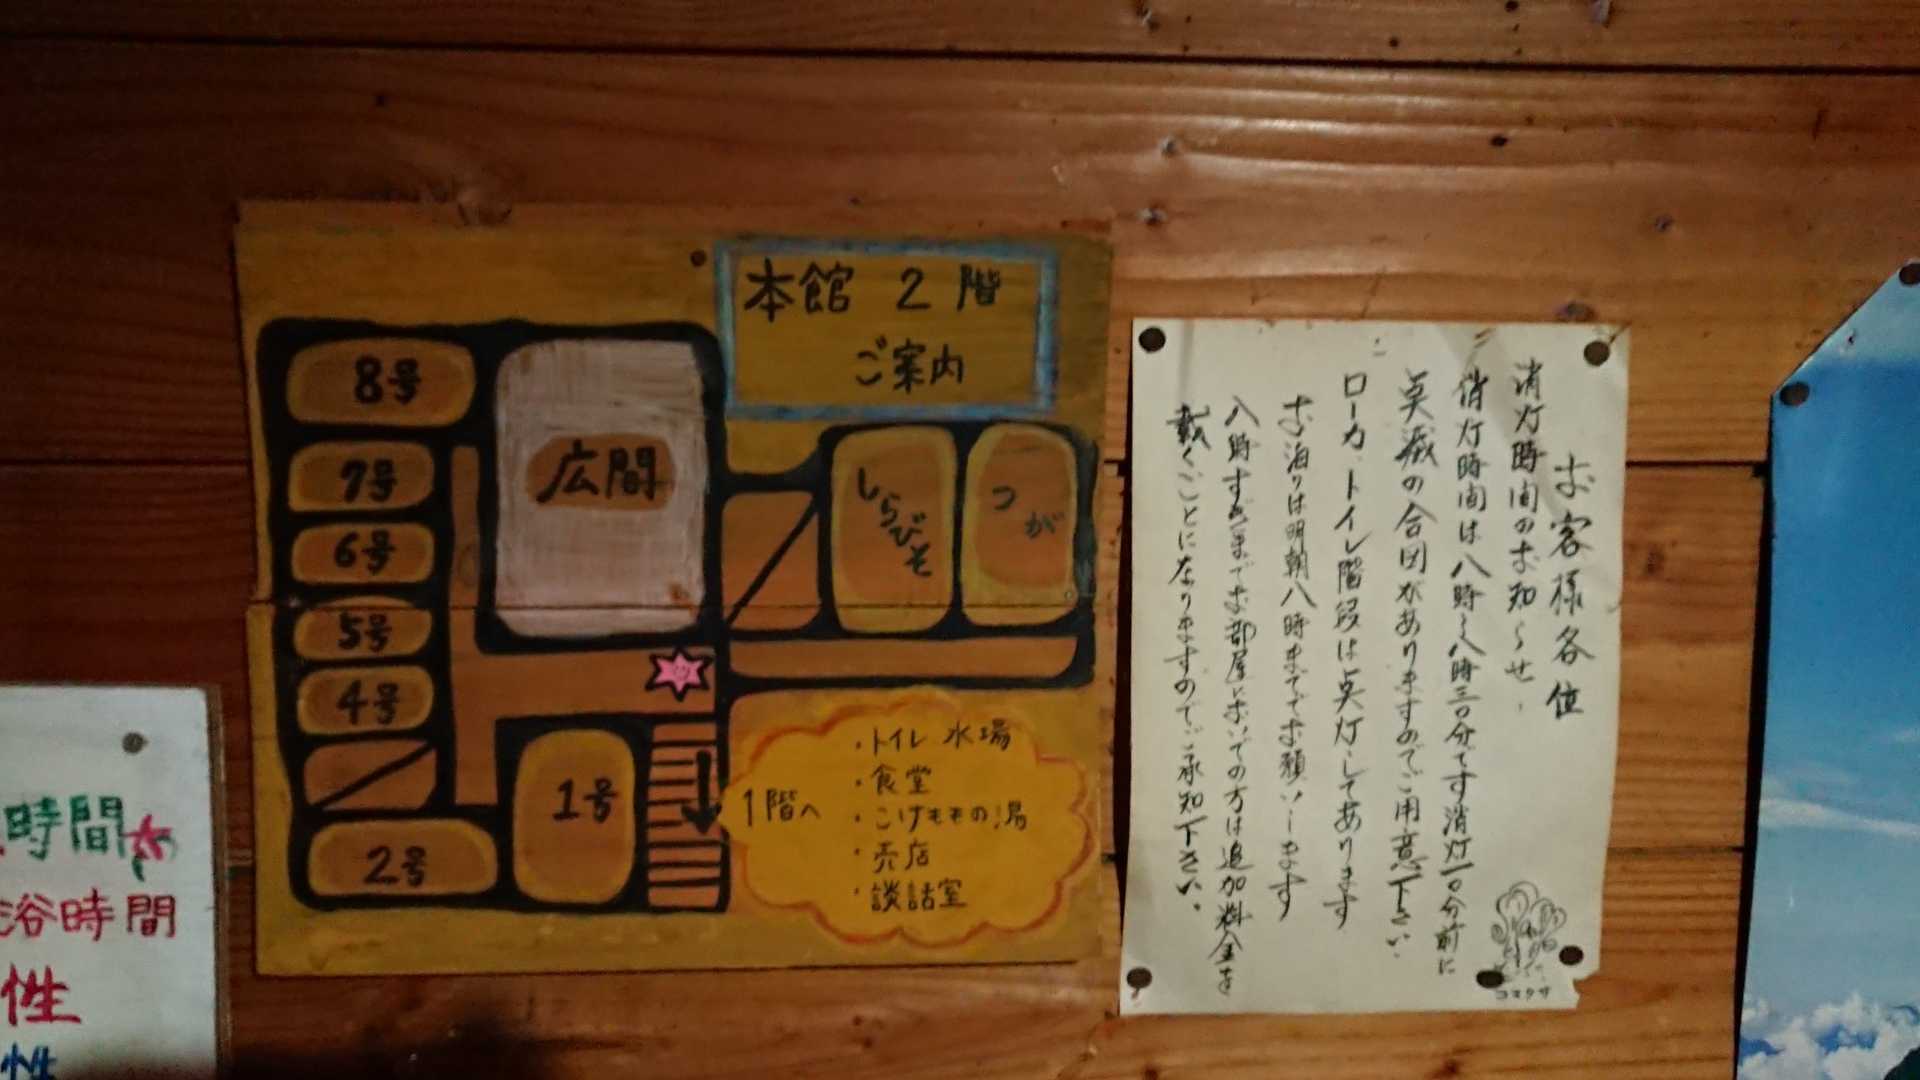 本館 2 階
ご案内
8号
7号
6号
5号
4号
2号
1号
広間
しらびそ
つが
1階へ
・トイレ 水場
・食堂
・こけももの湯
・売店
・談話室
お客様各位
消灯時間のお知らせ
消灯時間は八時〜八時三〇分です消灯一〇分前に
点滅の合図がありますのでご用意下さい
ローカ、トイレ階段は点灯してあります
お泊りは明朝八時まででお願いします
八時すぎまでお部屋においでの方は追加料金を
戴くことになりますのでご承知下さい。
コマクサ
時間
浴時間
性
性